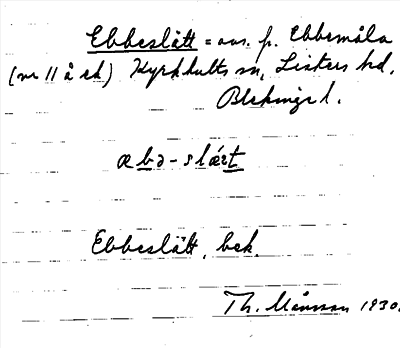 Ebbeslätt = avs. p. Ebbemåla
(nr 11 å ek) Kyrkhults sn, Listers hd,
Blekinge l.
æbə-slæ̀t
Ebbeslätt, bek.
Th. Månsson 1930.